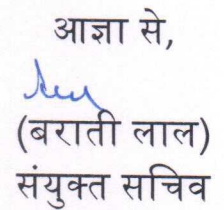 आज्ञा से,
(बराती लाल)
संयुक्त सचिव